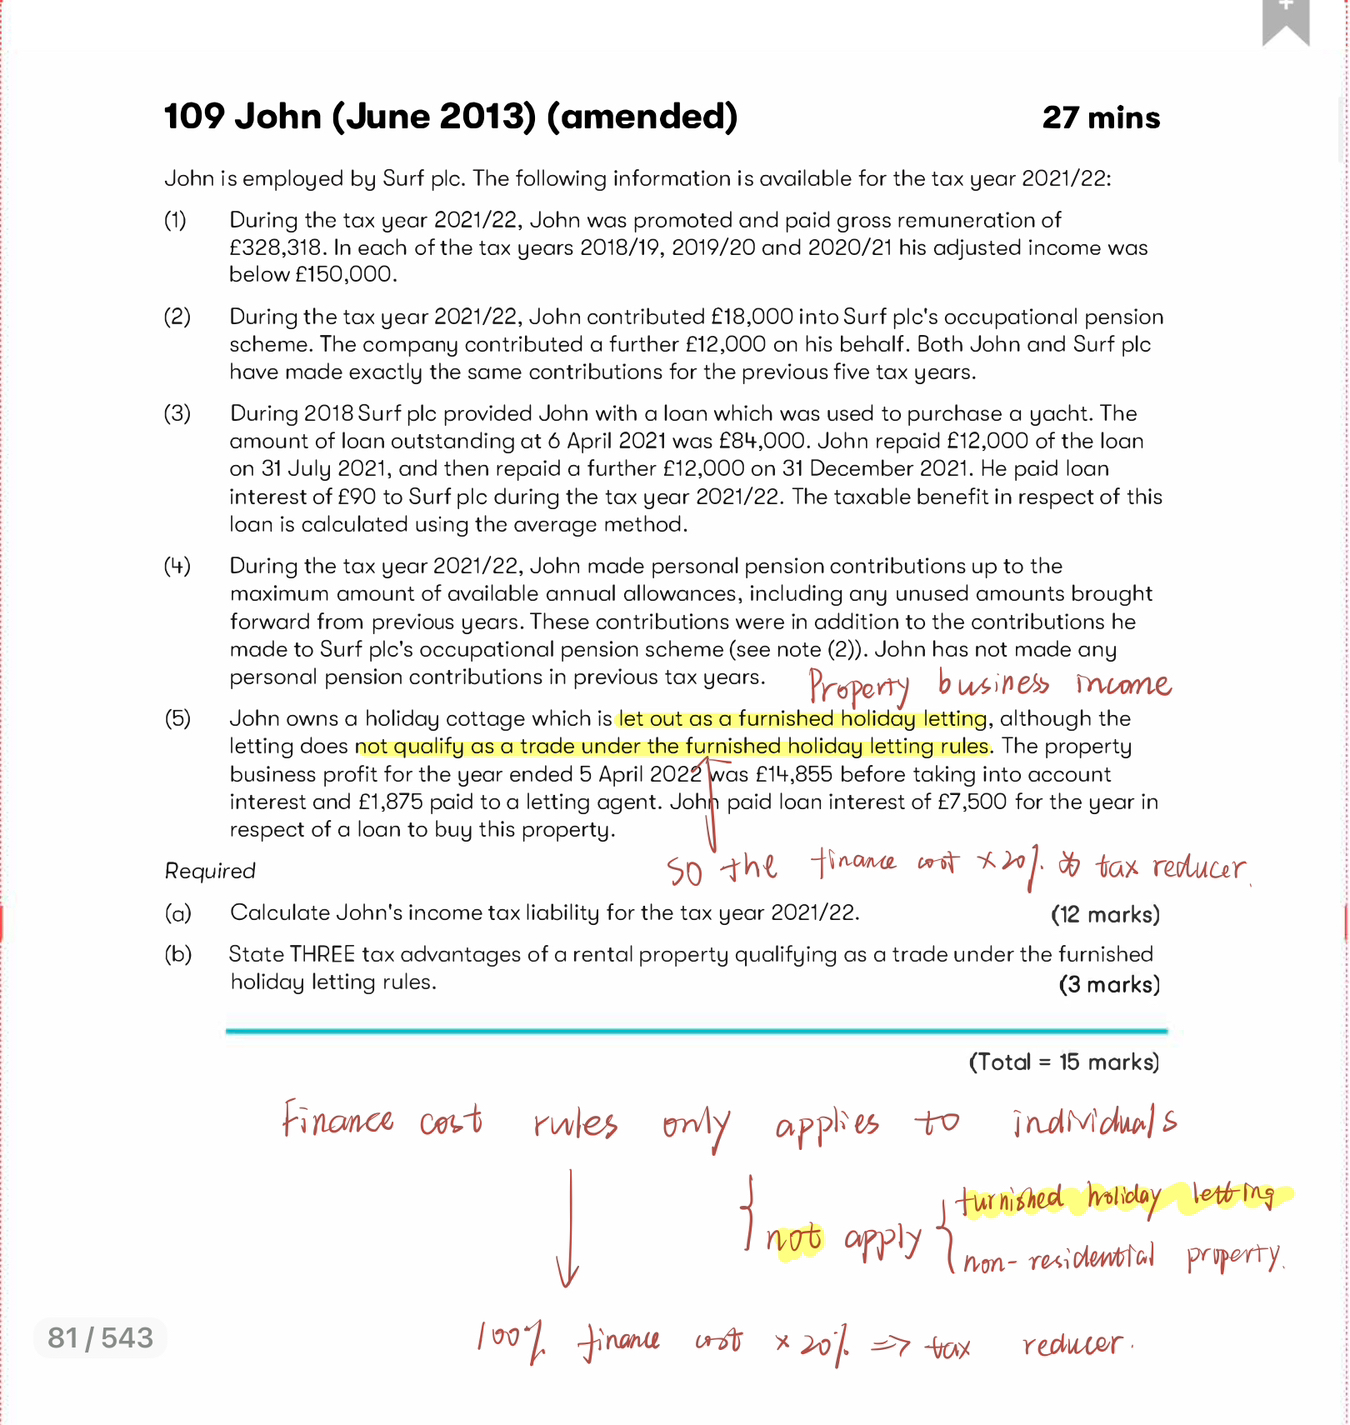 109 John (June 2013) (amended) 27 mins
John is employed by Surf plc. The following information is available for the tax year 2021/22:
(1) During the tax year 2021/22, John was promoted and paid gross remuneration of
£328,318. In each of the tax years 2018/19, 2019/20 and 2020/21 his adjusted income was
below £150,000.
(2) During the tax year 2021/22, John contributed £18,000 into Surf plc's occupational pension
scheme. The company contributed a further £12,000 on his behalf. Both John and Surf plc
have made exactly the same contributions for the previous five tax years.
(3) During 2018 Surf plc provided John with a loan which was used to purchase a yacht. The
amount of loan outstanding at 6 April 2021 was £84,000. John repaid £12,000 of the loan
on 31 July 2021, and then repaid a further £12,000 on 31 December 2021. He paid loan
interest of £90 to Surf plc during the tax year 2021/22. The taxable benefit in respect of this
loan is calculated using the average method.
(4) During the tax year 2021/22, John made personal pension contributions up to the
maximum amount of available annual allowances, including any unused amounts brought
forward from previous years. These contributions were in addition to the contributions he
made to Surf plc's occupational pension scheme (see note (2)). John has not made any
personal pension contributions in previous tax years.
Property business income
(5) John owns a holiday cottage which is let out as a furnished holiday letting, although the
letting does not qualify as a trade under the furnished holiday letting rules. The property
business profit for the year ended 5 April 2022 was £14,855 before taking into account
interest and £1,875 paid to a letting agent. John paid loan interest of £7,500 for the year in
respect of a loan to buy this property.
so the finance cost ×20% tax reducer.
Required
(a) Calculate John's income tax liability for the tax year 2021/22. (12 marks)
(b) State THREE tax advantages of a rental property qualifying as a trade under the furnished
holiday letting rules. (3 marks)
(Total = 15 marks)
Finance cost rules only applies to individuals
furnished holiday letting
not apply
non-residential property.
100% finance cost × 20% => tax reducer.
81 / 543